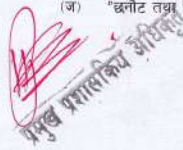 (ज) "छनौट तथा
प्रमुख प्रशासकिय अधिकृत